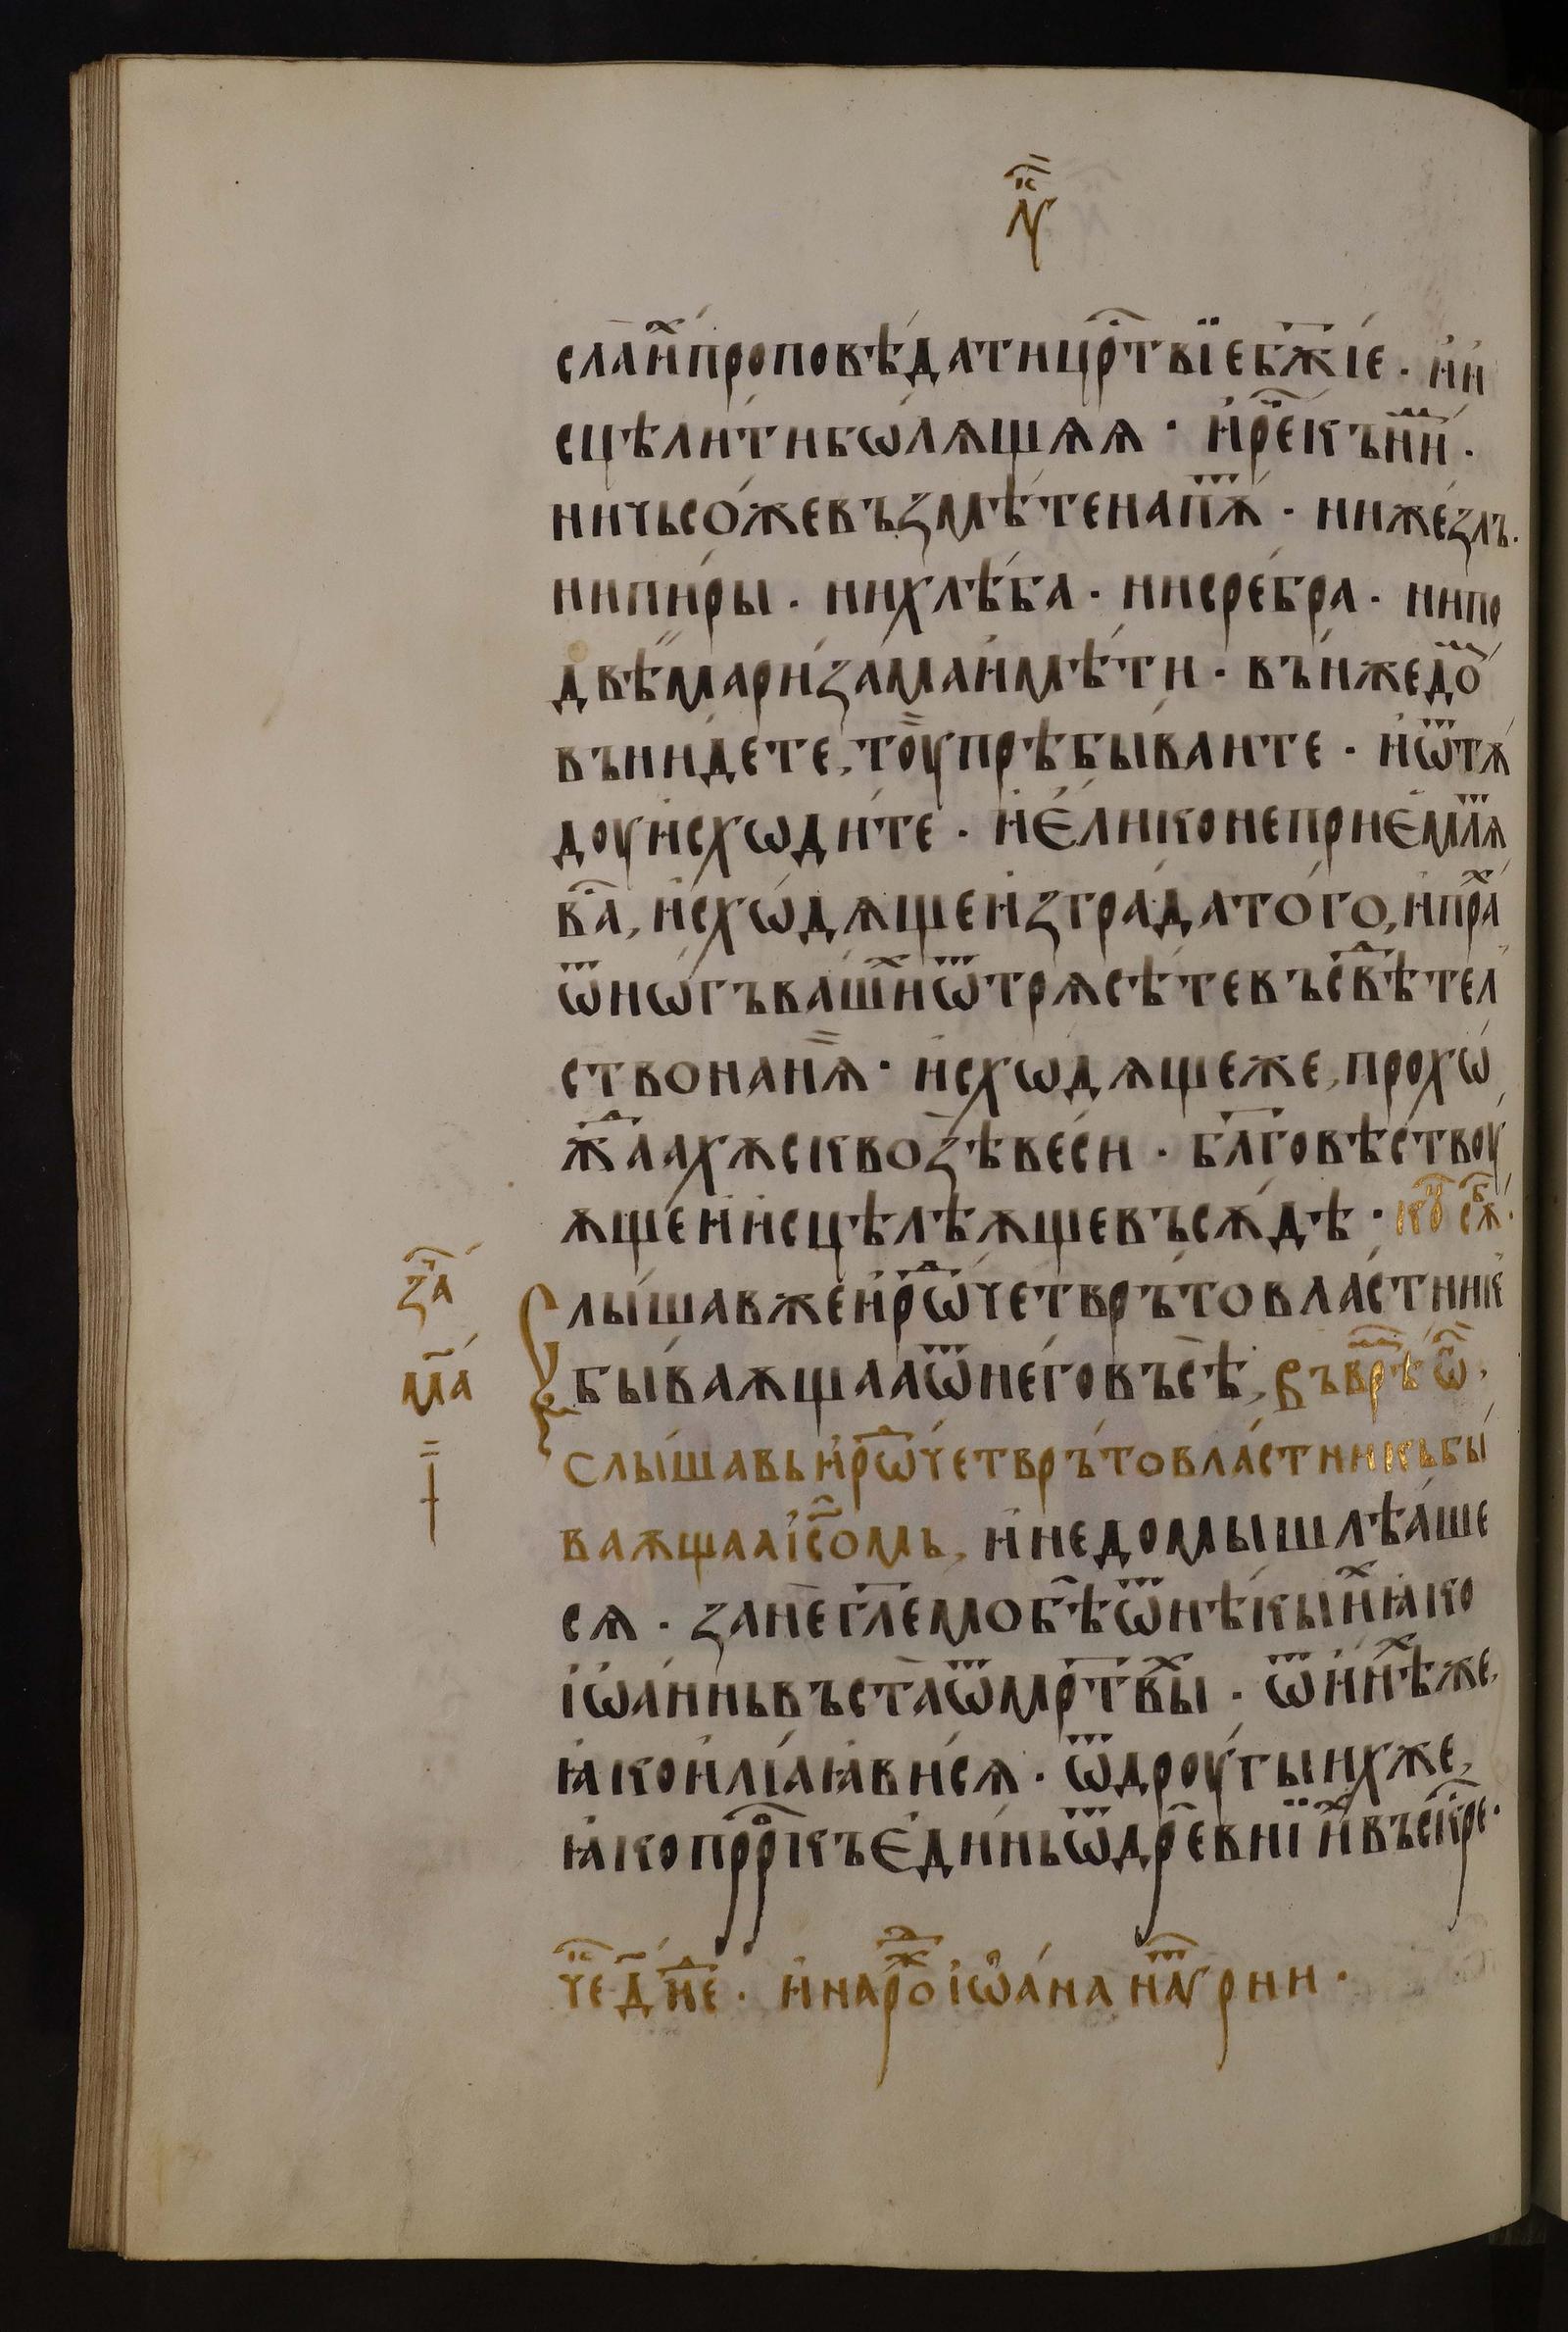 сла и҆ проповѣ́дати цр҃твїе бж҃їе · и҆ и҆
сцѣли́ти бѡлѧщѧѧ · и҆ рⷱ҇е къ ни́ⷨ ·
ничьсо́же въꙁмѣ́те на пѫⷮ · ни жеꙁлъ ·
ни пи́ры · ни хлѣ́ба · ни сре́бра · ни по
двѣ̀ма ри́ꙁама и҆мѣ́ти · въ ни́же доⷨ
въни́дете, тоу̀ прѣбыва́ите · и҆ ѿтѫ
доу и҆схѡди́те · и҆ є҆ли́ко не прие́млѧⷮ
ва́с, и҆схѡ́дѧще иꙁ гра́да то́го, и҆ праⷯ
ѿ нѡ́гъ ва́шиⷯ ѿтрѧсѣ́те въ свⷣѣтел
ство на нѧ̀ · и҆схѡдѧще же, прохѡ́
жⷣаахѫ сквоꙁѣ ве́си · бл҃говѣствоу́
ѧще и҆ и҆сцѣлѣѧще въсѫ́дѣ · коⷰ҇ сѫⷠ ·
лы́шав же и҆рѡⷣ четвръ́товла́стник
быва́ѫщаа ѿ не́го въсѣ̀, въ врⷨѣ ѡ҆́н,
Слы́шавь и҆рѡⷣ четвръ́товла́стникь бы́
ваѫщаа і҆сⷭомь, и҆ недомышлѣ́аше
сѧ · ꙁанѐ гл҃емо бѣ̀ ѿ нѣ́кыиⷯ ꙗ҆ко
і҆ѡа́ннь въста̀ ѿ мрт҃выⷯ · ѿ и҆нѣⷯ же,
ꙗ҆ко и҆лі́а ꙗ҆ви́сѧ · ѿ дроу́гыих же,
ꙗ҆ко прⷪ҇ркъ є҆ди́нь ѿ дре́внїиⷯ въскр҃е ·
чеⷦ҇ дн҃е · и҆ на роⷤ і҆ѡ҆а́на наⷮ ꙋрии ·
ꙁаⷱ҇
ма́